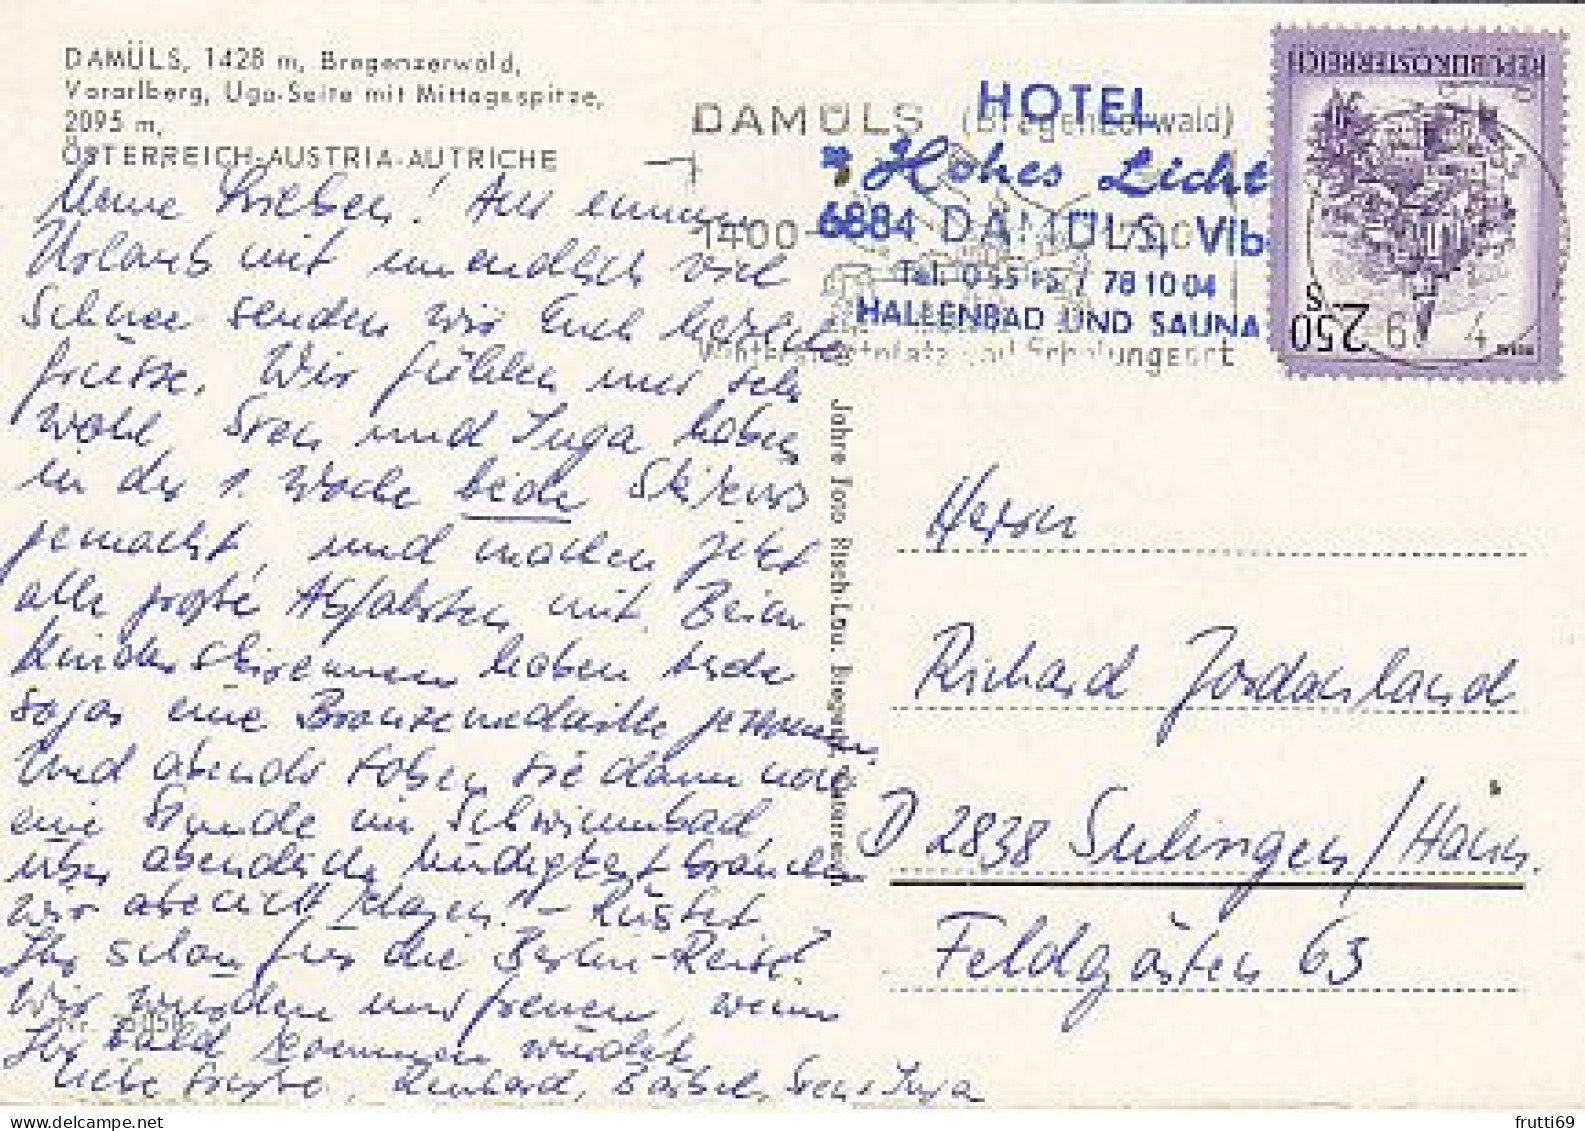 DAMÜLS, 1428 m, Bregenzerwald,
Vorarlberg, Uga-Seite mit Mittagsspitze,
2095 m,
ÖSTERREICH-AUSTRIA-AUTRICHE
Meine Lieben! Aus einem
Urlaub mit unendlich viel
Schnee senden wir Euch herzliche
Grüsse. Wir fühlen uns sehr
wohl, Sven und Inga haben
in der 1. Woche beide Skikurs
gemacht, und machen jetzt
alle große Abfahrten mit. Beim
Kinderskirennen haben beide
sogar eine Bronzemedaille gewonnen.
Und abends toben sie dann noch
eine Stunde im Schwimmbad,
über abendliche Müdigkeit brauchen
wir also nicht klagen! - Rüstet
Ihr schon für die Berlin-Reise?
Wir würden uns freuen, wenn
Ihr bald kommen würdet.
Liebe Grüße, Reinhard, Bärbel, Sven + Inga
DAMÜLS (Bregenzerwald)
1400-
Wintersportplatz und Erholungsort
HOTEL
Hohes Licht
6884 DAMÜLS, Vlb
Tel. 05515 / 781004
HALLENBAD UND SAUNA
REPUBLIK ÖSTERREICH
S 2.50
Jahre Foto Risch-Lau, Bregenz, Österreich
Herrn
Richard Jordanland
D 2838 Sulingen/Hann.
Feldgärten 63
frutti69